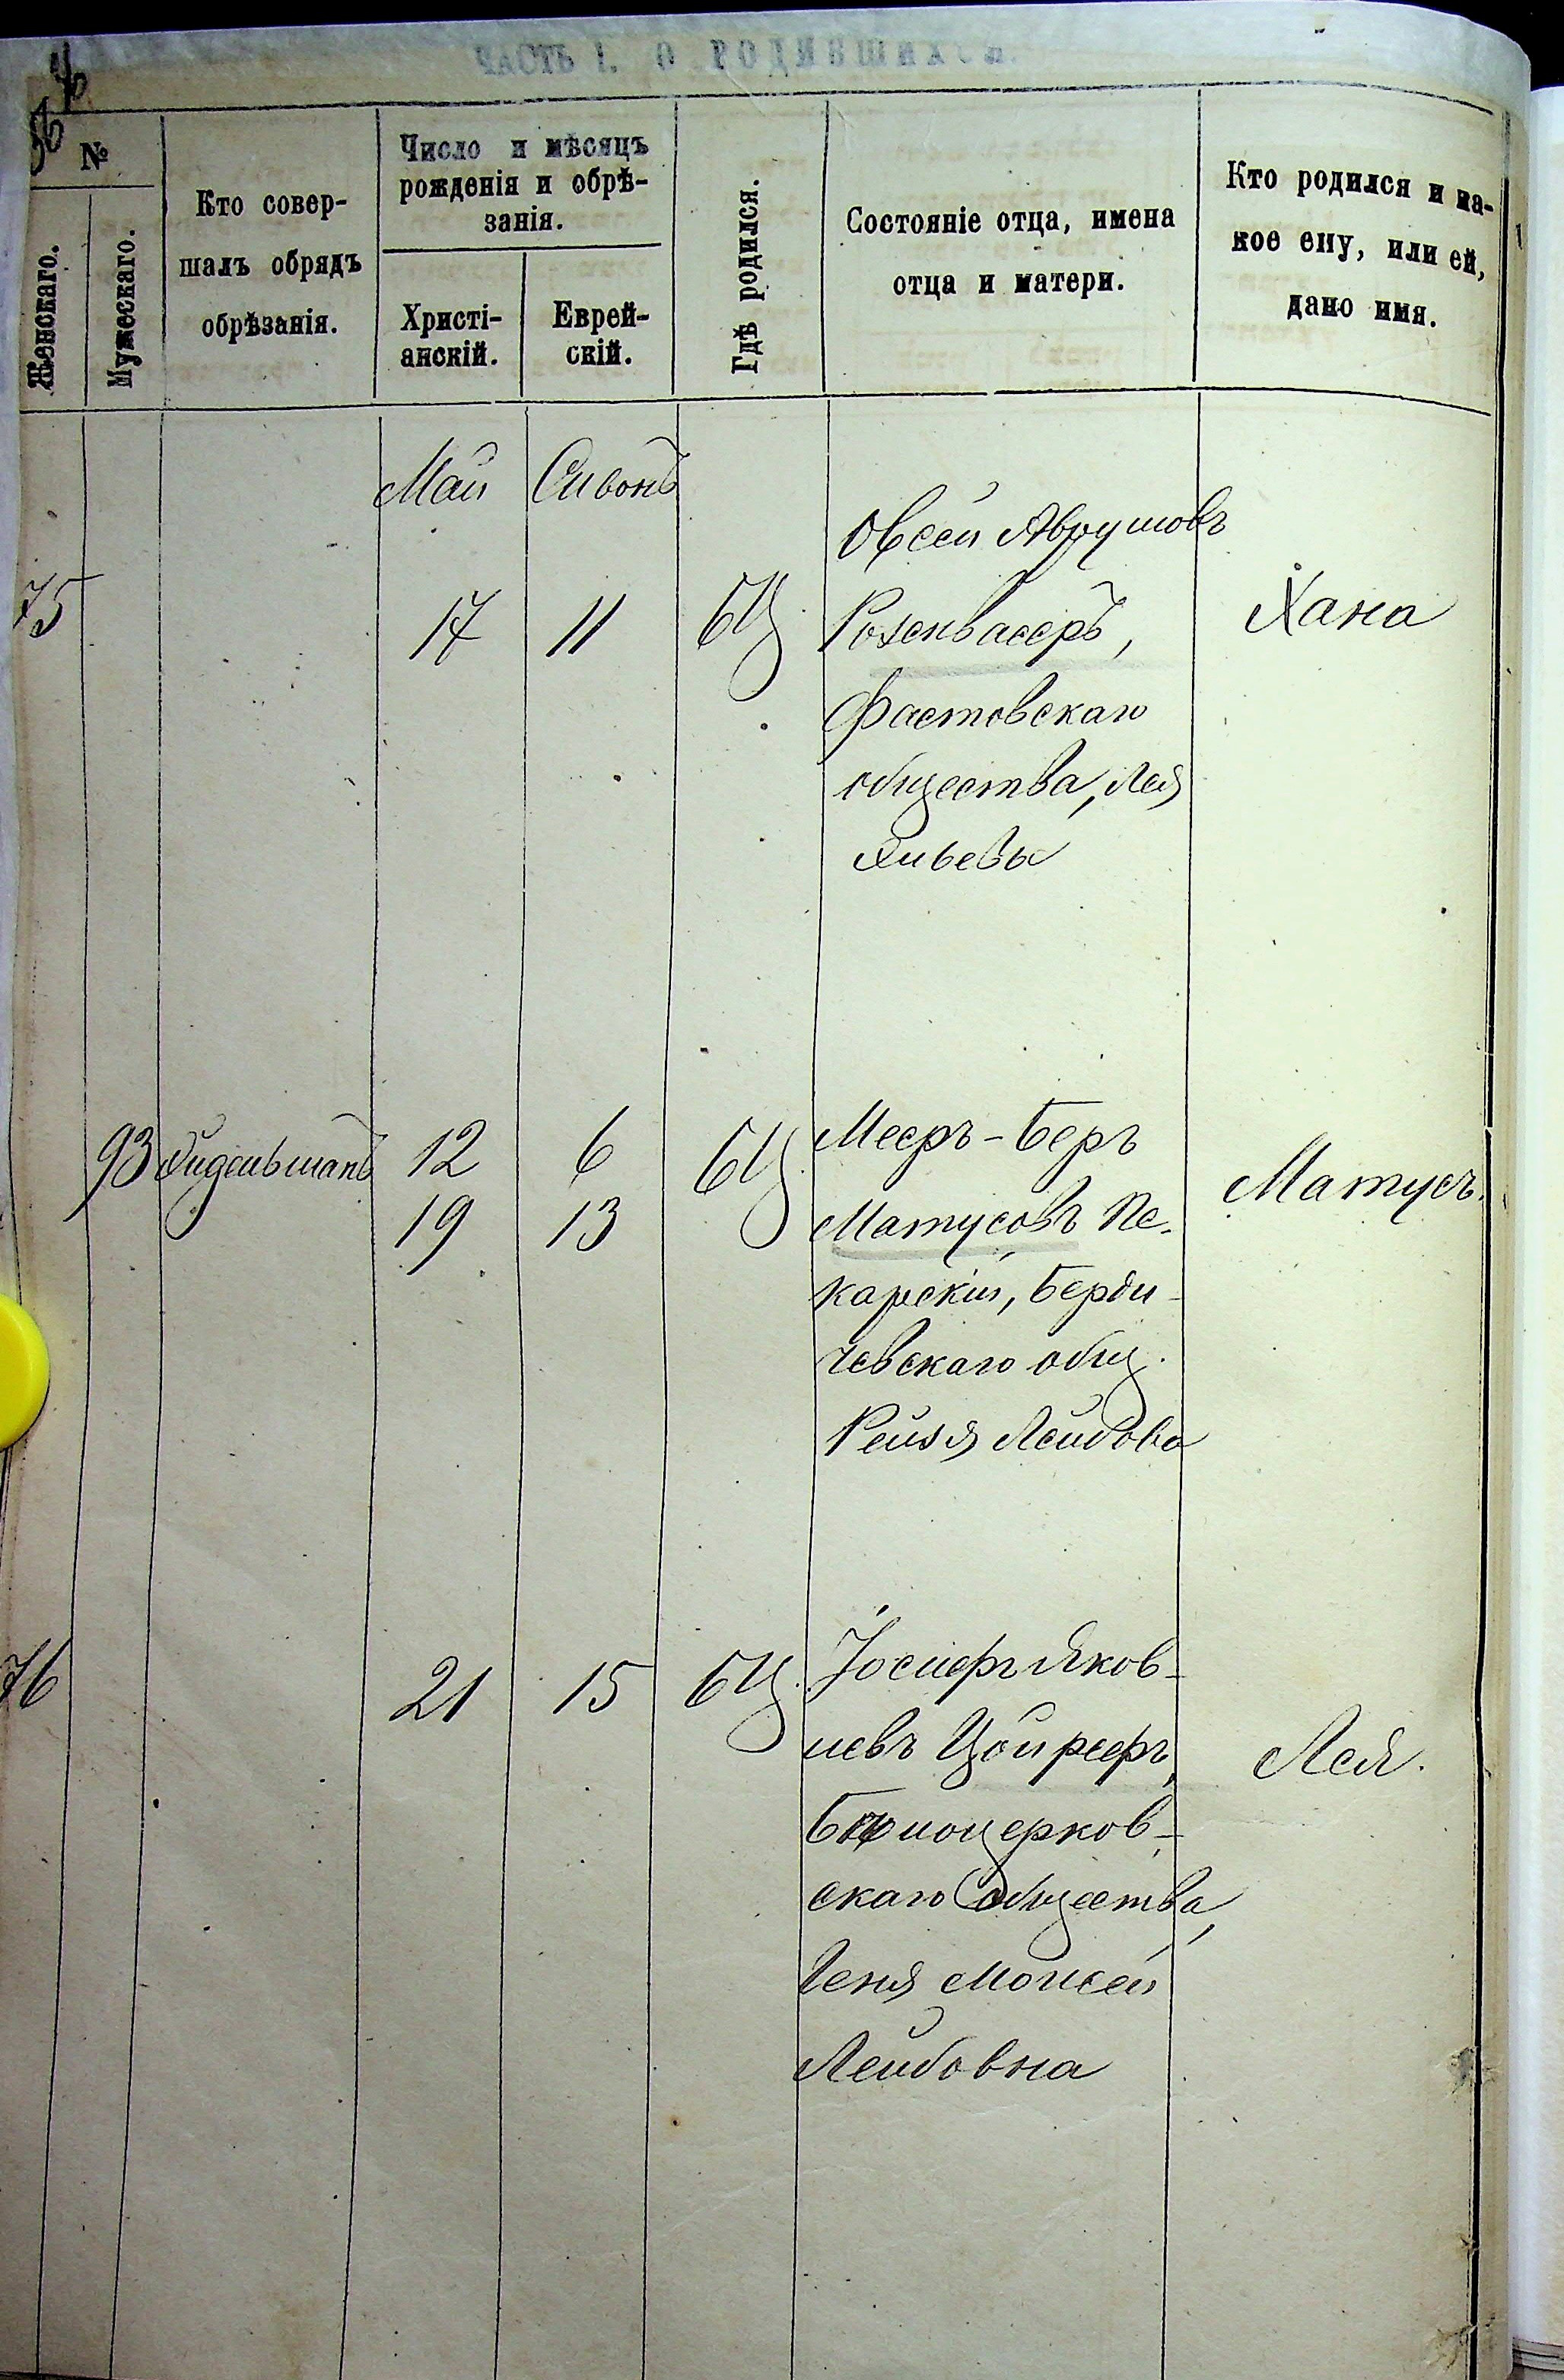 ЧАСТЬ I. О РОДИВШИХСЯ.
№
Женскаго.
Мужескаго.
Кто совер-
шалъ обрядъ
обрѣзанія.
Число и мѣсяцъ
рожденія и обрѣ-
занія.
Христі-
анскій.
Еврей-
скій.
Гдѣ родился.
Состояніе отца, имена
отца и матери.
Кто родился и ка-
кое ему, или ей,
дано имя.
Май Сивонъ
75 17 11 БЦ
Овсей Аврумовъ
Розенвасеръ,
Фастовскаго
общества, Лея
Хана
93 12 6 БЦ
19 13
Мееръ-Беръ
Матусовъ Пе-
карскій, Берди-
чевскаго общ.
Рейзя Лейбова
Матусъ.
76 21 15 БЦ
Іосифъ Яков-
левъ Цойрефъ,
Бѣлоцерков-
скаго общества,
Геня Моисей
Лейбовна
Лея.